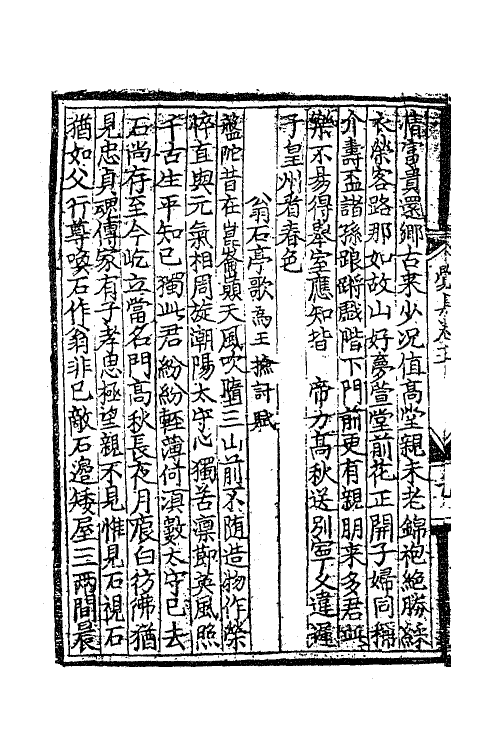 情富貴還鄉古來少况值高堂親未老錦袍絶勝綵
衣榮客路那如故山好夢萱堂前花正開子婦同稱
介壽盃諸孫踉蹡戲階下門前更有親朋来多君此
樂不易得舉室應知皆　帝力高秋送别寧久違遲
子皇州省春色
翁石亭歌為王㧾討賦
盤陀昔在崑崙巔天風吹墮三山前不随造物作榮
悴直與元氣相周旋潮陽太守心獨苦凛節英風照
千古生平知己獨此君紛紛輕薄何湏數太守已去
石尚存至今屹立當名門高秋長夜月痕白彷彿猶
見忠貞魂傳家有子孝思極望親不見惟見石視石
猶如父行尊喚石作翁非已敵石邉矮屋三兩間晨